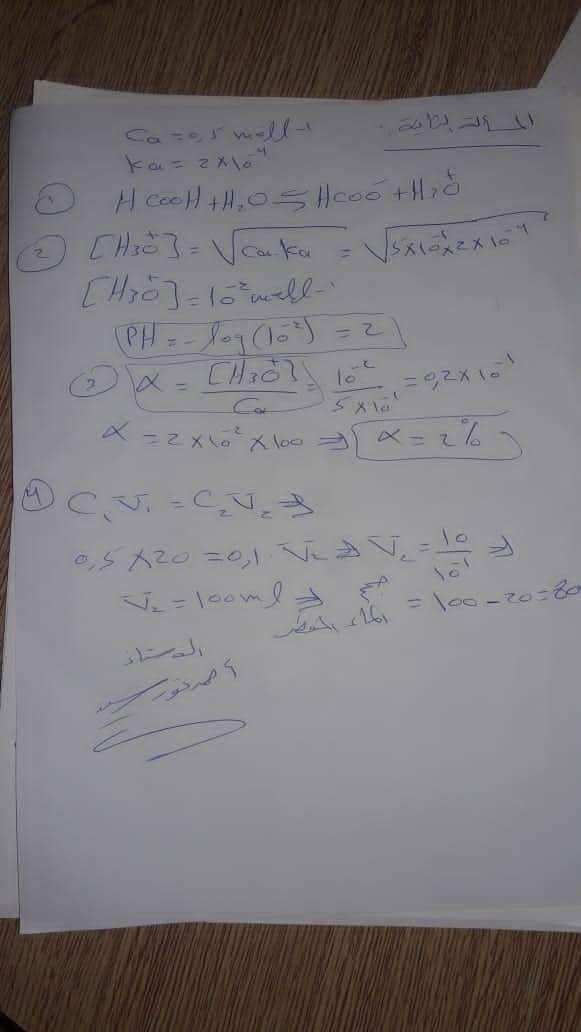 المسألة الثانية:
Ca = 0,5 mol l⁻¹
Ka = 2 × 10⁻⁴
① HCOOH + H₂O ⇌ HCOO⁻ + H₃O⁺
② [H₃O⁺] = √Ca.Ka = √5×10⁻¹×2×10⁻⁴
[H₃O⁺] = 10⁻² mol l⁻¹
PH = -log(10⁻²) = 2
③ α = [H₃O⁺]/Ca = 10⁻²/5×10⁻¹ = 0,2×10⁻¹
α = 2×10⁻²×100 ⇒ α = 2%
④ C₁V₁ = C₂V₂ ⇒
0,5 × 20 = 0,1 . V₂ ⇒ V₂ = 10/10⁻¹ ⇒
V₂ = 100 ml ⇒ حجم الماء المقطر = 100 - 20 = 80
الاستاذ